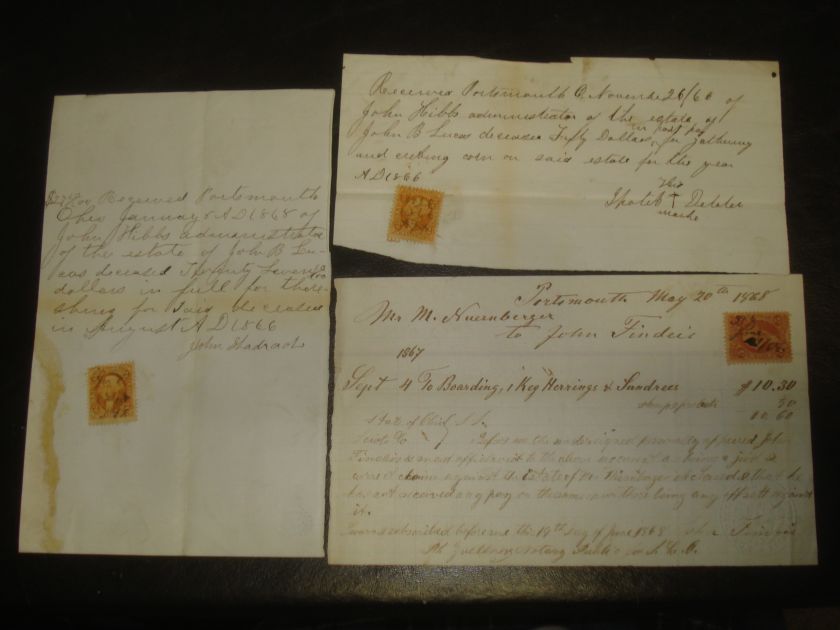 Received Portsmouth
Ohio January AD 1868 of
John Hibbs administrator
of the estate of John B Lu-
cas deceased Twenty Seven
dollars in full for thre-
shing for Said
in August AD 1866
John Shadrach
Received Portsmouth O November 26/66 of
John Hibbs administrator of the estate of
John B Lucas deceased Fifty Dollars in part pay for gathering
and cribing corn on said estate for the year
AD 1866
His
marke
Portsmouth May 20th 1868
Mr M. Nuernberger
to John Findeis
1867
Sept 4 To Boarding, 1 Keg Herrings & Sundrees $10.30
30
10.60
State of Ohio, S.S.
Scioto Co Before me the undersigned personally appeared John
Findeis & made affidavit to the above account as being a just &
correct claim against the Estate of & that he
has not received any pay on the same or without being any offsett against
it.
Sworn & subscribed before me this 19th day of June 1868 John Findeis
Notary Public in S. C. O.